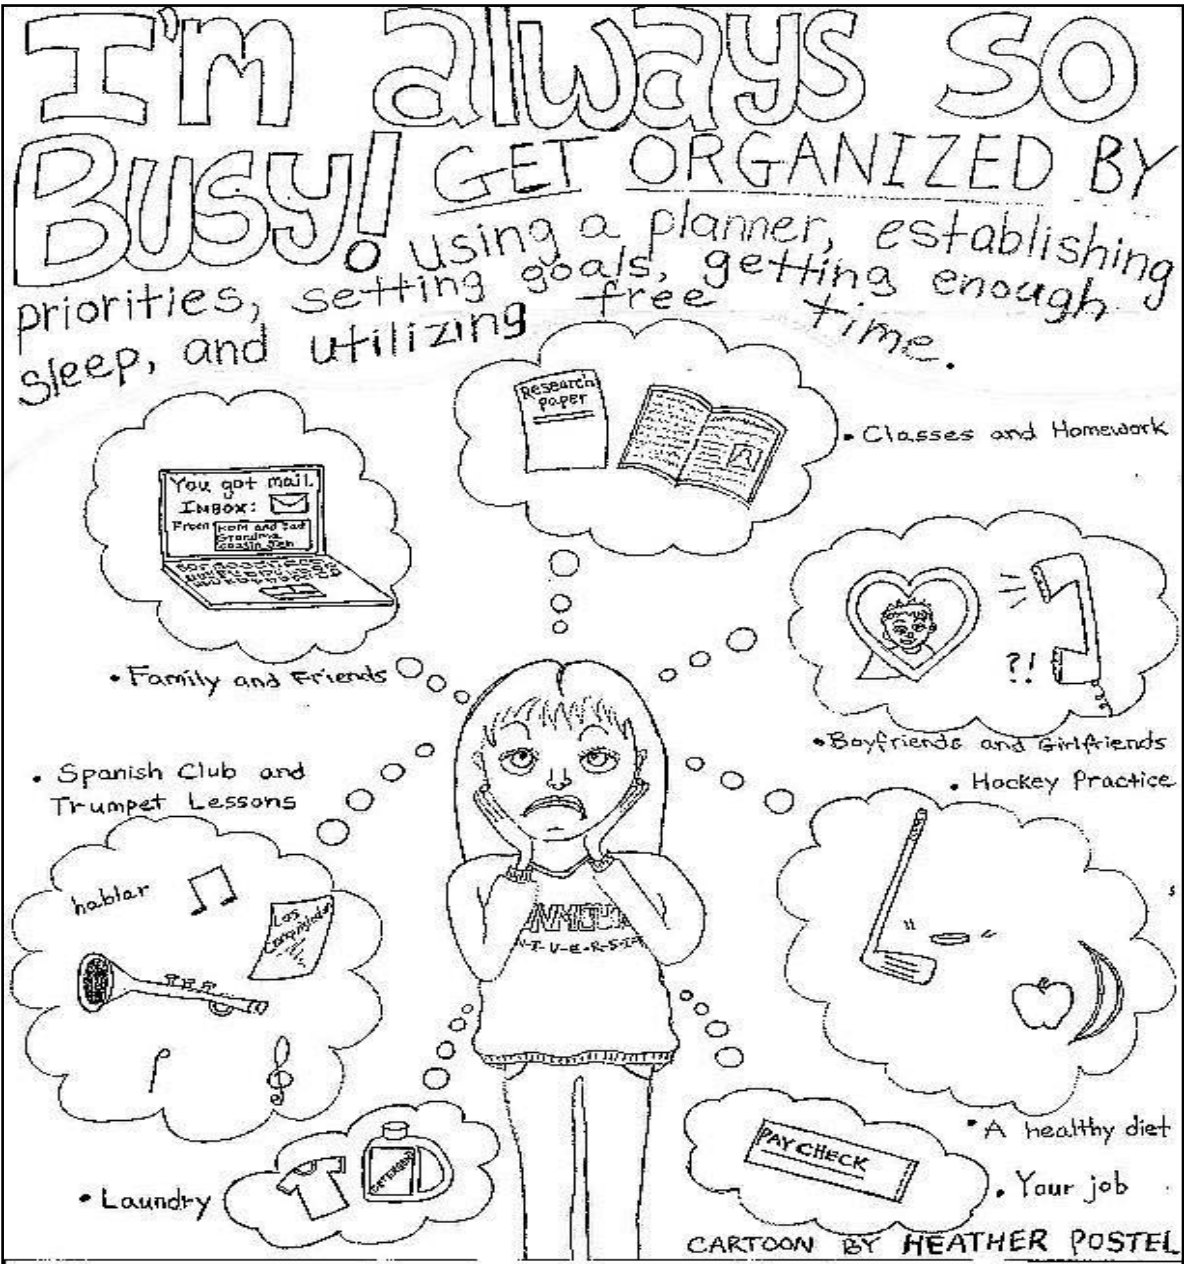 I'm always so
Busy! GET ORGANIZED BY
using a planner, establishing
priorities, setting goals, getting enough
sleep, and utilizing free time.
Research
paper
• Classes and Homework
You got mail.
INBOX:
From Mom and Dad
Grandma
Cousin Jen
• Family and Friends
?!
• Boyfriends and Girlfriends
• Spanish Club and
Trumpet Lessons
• Hockey Practice
hablar
Las
U-N-I-V-E-R-S-I-T
• A healthy diet
DETERGENT
• Laundry
PAYCHECK
• Your job
CARTOON BY HEATHER POSTEL